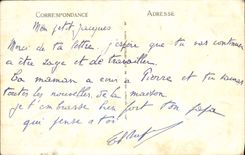 CORRESPONDANCE ADRESSE
Mon petit Jacques
Merci de ta lettre. J'espère que tu vas continuer
à être sage et de travailler.
La maman a écris à Pierre et tu sauras
toutes les nouvelles de la maison
je t'embrasse bien fort ton papa
qui pense à toi